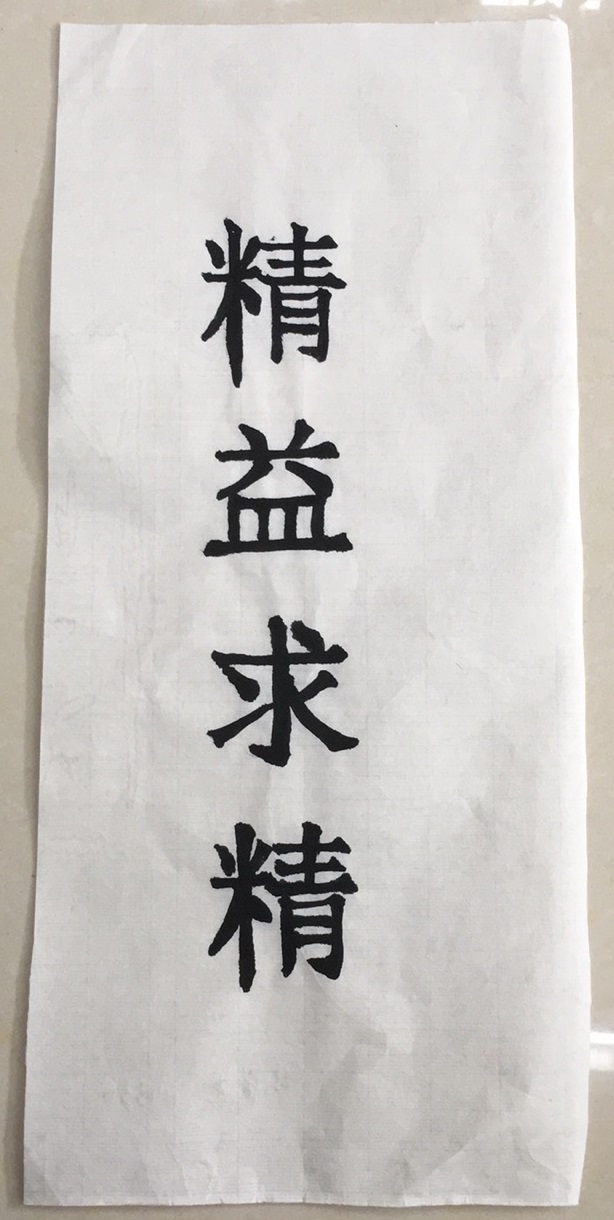 精益求精